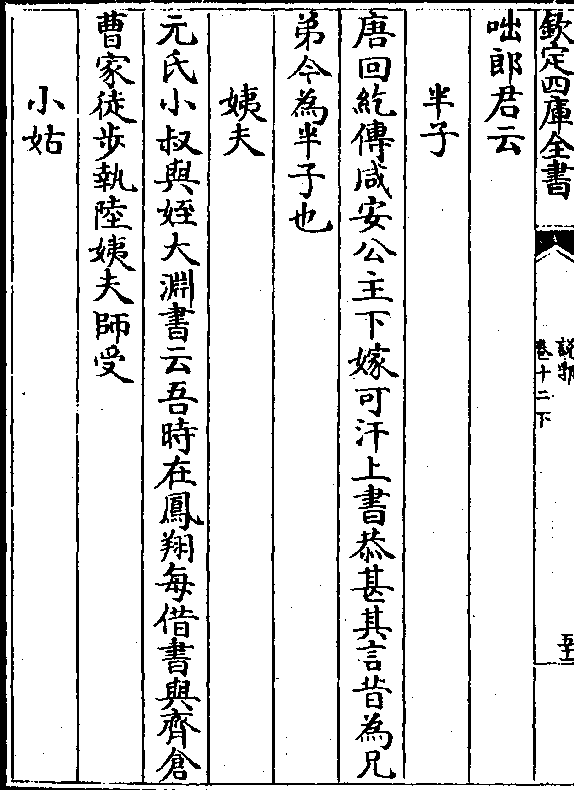 欽定四庫全書
説郛
卷十二下
咄郎君云
半子
唐回紇傳咸安公主下嫁可汗上書恭甚其言昔為兄
弟今為半子也
姨夫
元氏小叔與姪大淵書云吾時在鳳翔每借書與齊倉
曹家徒步執陸姨夫師受
小姑